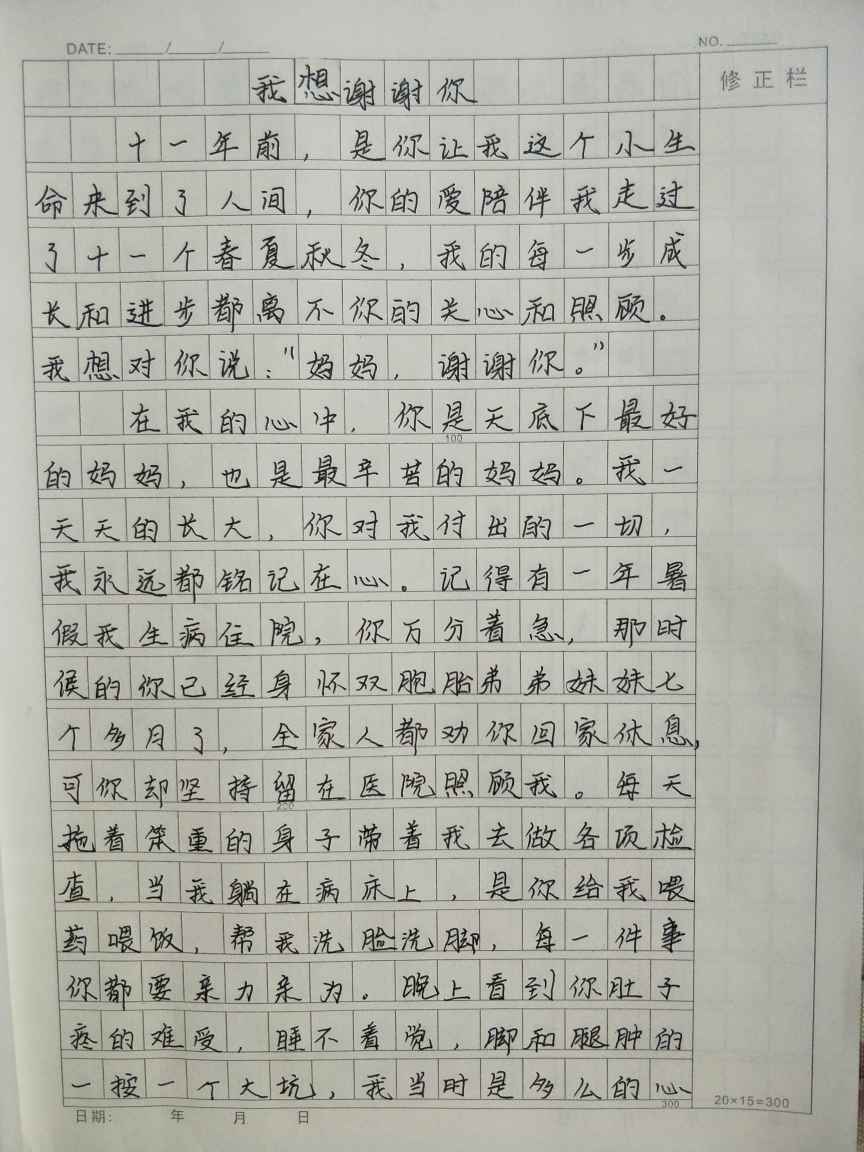 DATE: ____/____/____
NO. ____
我想谢谢你
修正栏
十一年前，是你让我这个小生
命来到了人间，你的爱陪伴我走过
了十一个春夏秋冬，我的每一步成
长和进步都离不你的关心和照顾。
我想对你说：“妈妈，谢谢你。”
在我的心中，你是天底下最好
100
的妈妈，也是最辛苦的妈妈。我一
天天的长大，你对我付出的一切，
我永远都铭记在心。记得有一年暑
假我生病住院，你万分着急，那时
侯的你已经身怀双胞胎弟弟妹妹七
个多月了，全家人都劝你回家休息，
可你却坚持留在医院照顾我。每天
200
拖着笨重的身子带着我去做各项检
查，当我躺在病床上，是你给我喂
药喂饭，帮我洗脸洗脚，每一件事
你都要亲力亲为。晚上看到你肚子
疼的难受，睡不着觉，脚和腿肿的
一按一个大坑，我当时是多么的心
300
20×15=300
日期： 年 月 日